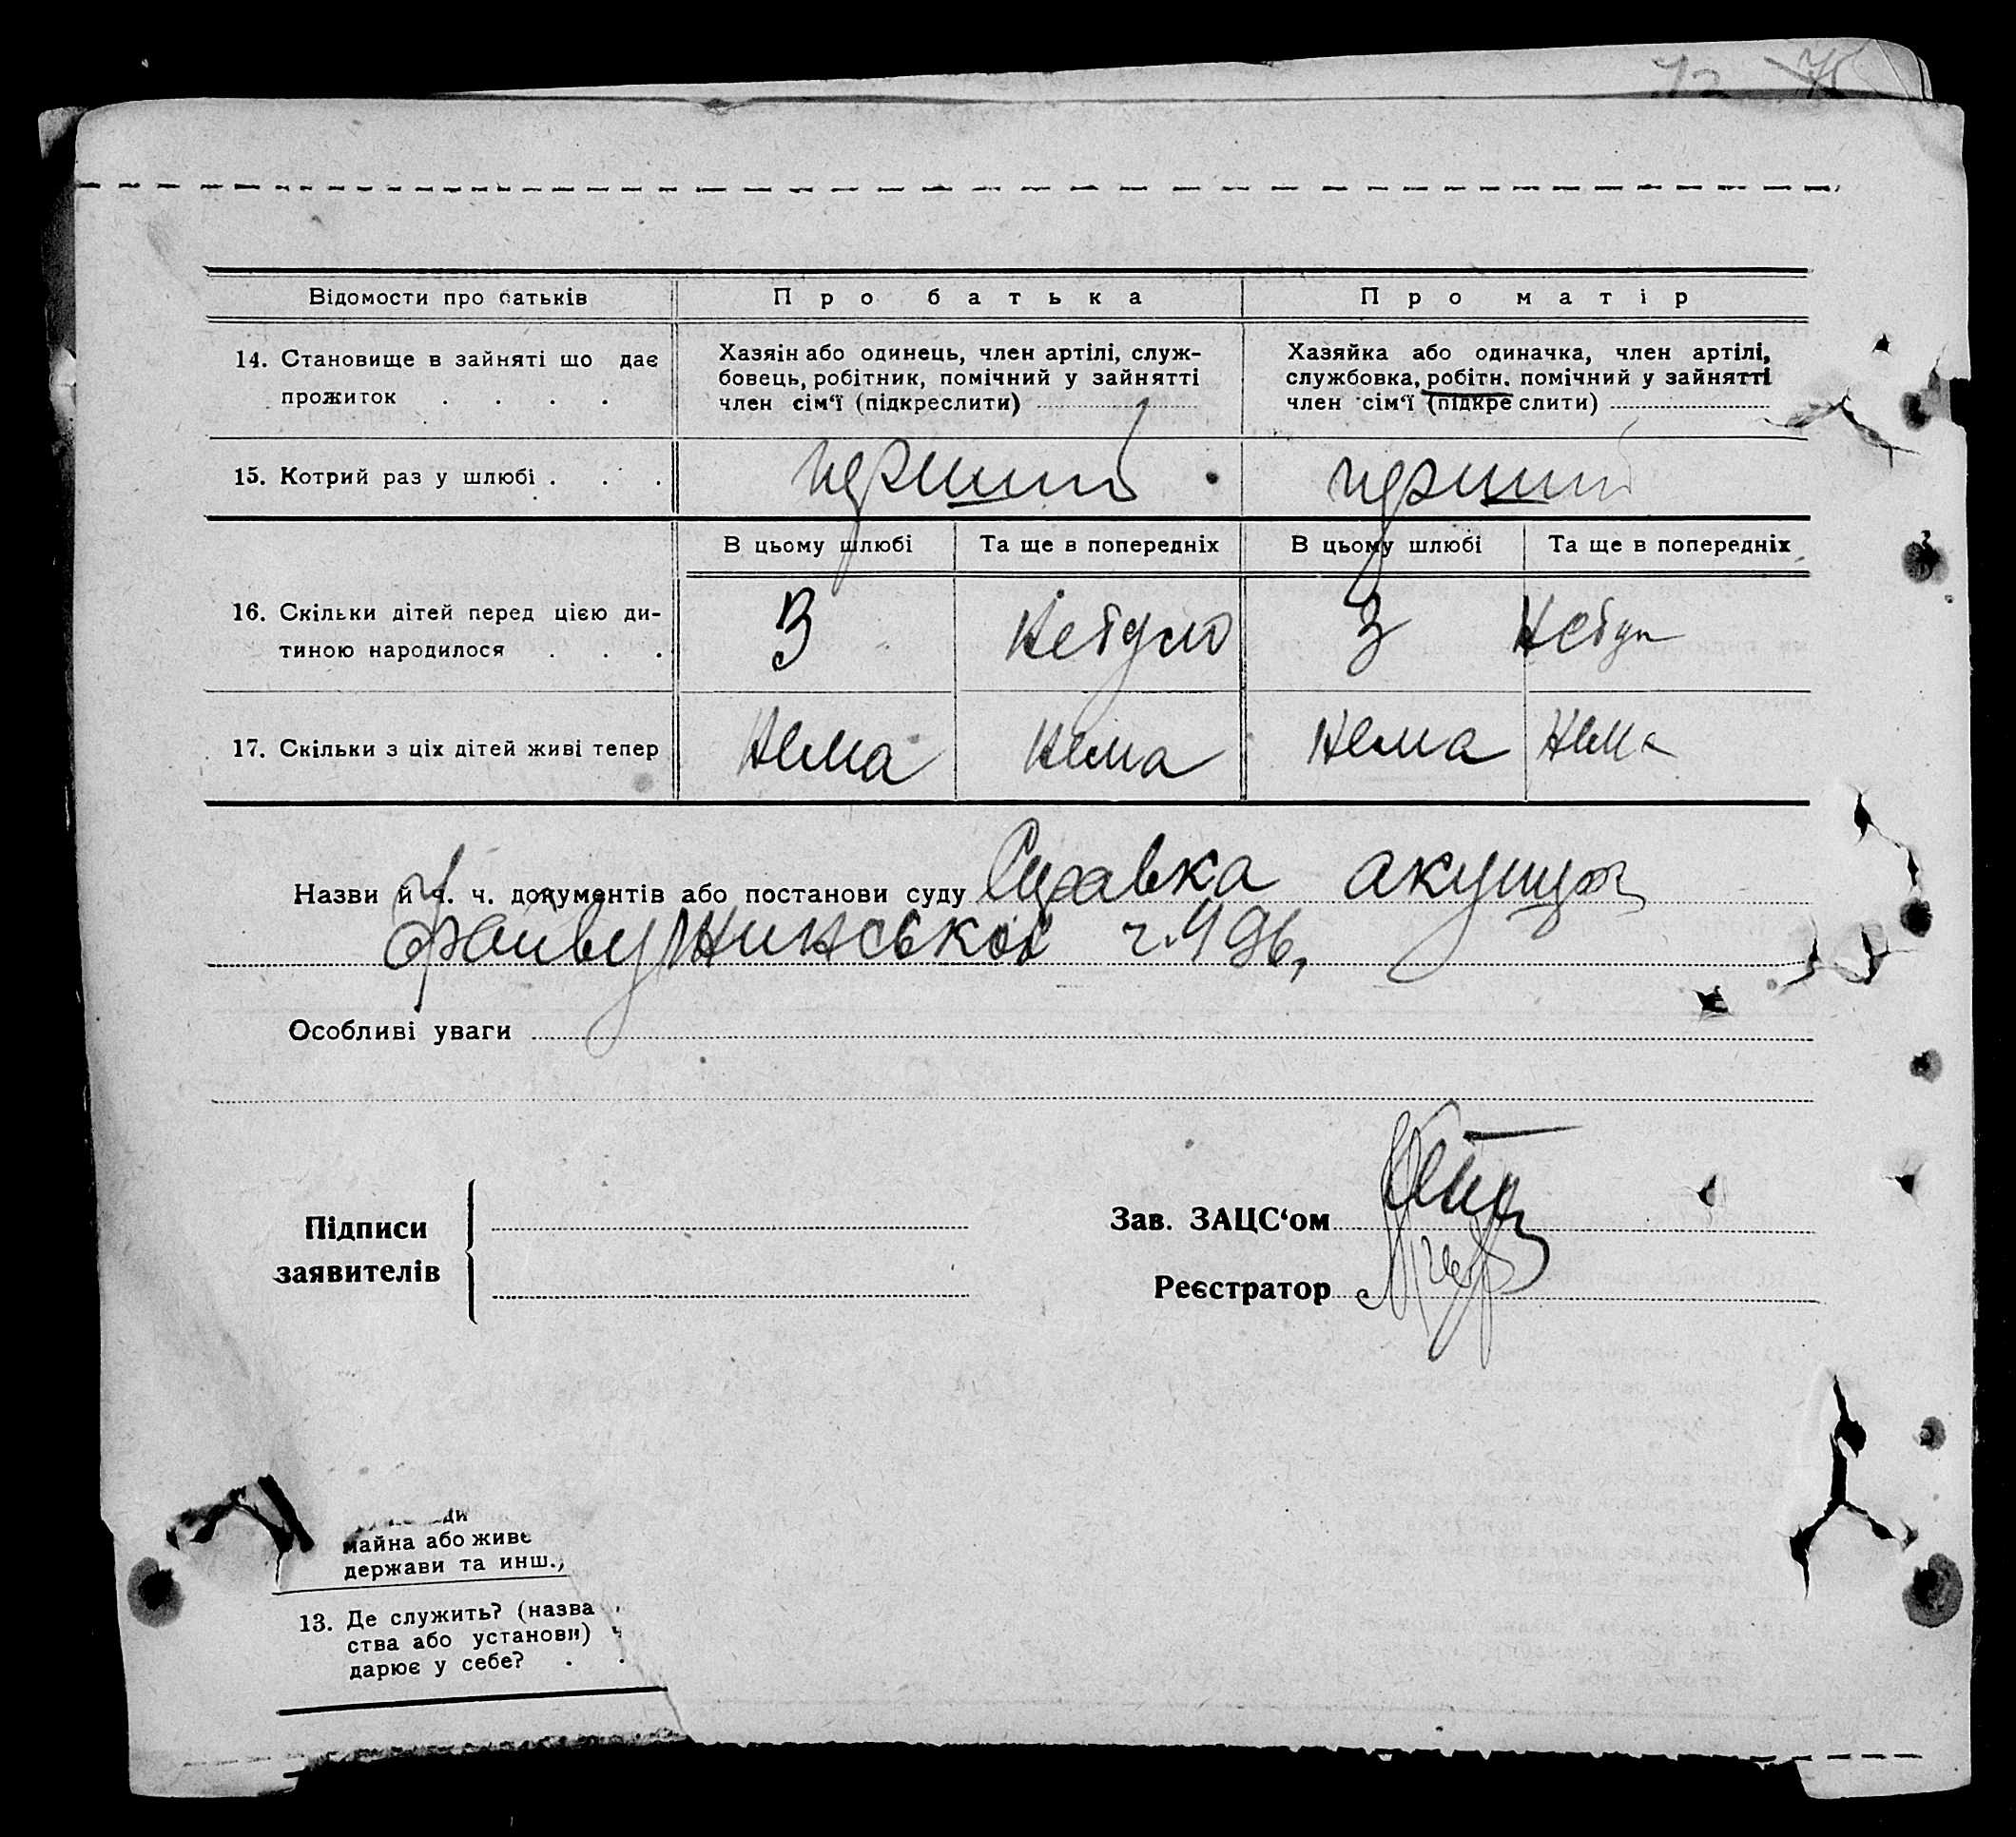 72 75
Відомости про батьків
Про батька
Про матір
14. Становище в зайняті що дає
прожиток . . . .
Хазяїн або одинець, член артілі, служ-
бовець, робітник, помічний у зайнятті
член сім‘ї (підкреслити)
Хазяйка або одиначка, член артілі,
службовка, робітн. помічний у зайнятті
член сім‘ї (підкреслити)
15. Котрий раз у шлюбі . . .
перший
перший
В цьому шлюбі
Та ще в попередніх
В цьому шлюбі
Та ще в попередніх
16. Скільки дітей перед цією ди-
тиною народилося . . .
3
Небуло
3
Небул
17. Скільки з ціх дітей живі тепер
Нема
Нема
Нема
Нема
Назви й ч. ч. документів або постанови суду Справка акушер
ч. 496,
Особливі уваги
Підписи
заявителів
Зав. ЗАЦС‘ом
Реєстратор
ди
майна або живе
держави та инш.,
13. Де служить? (назва
ства або установи)
дарює у себе? . .